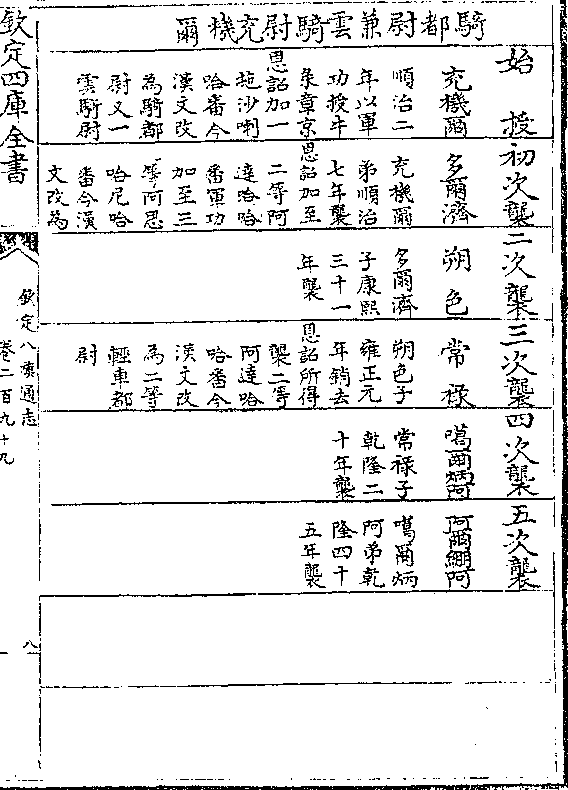 騎都尉兼雲騎尉充機爾
始授
充機爾
順治二
年以軍
功授牛
彔章京
恩詔加一
拖沙喇
哈番今
漢文改
為騎都
尉又一
雲騎尉
初次襲
多爾濟
充機爾
弟順治
七年襲
恩詔加至
二等阿
達哈哈
番軍功
加至三
等阿思
哈尼哈
番今漢
文改為
二次襲
朔色
多爾濟
子康熙
三十一
年襲
三次襲
常祿
朔色子
雍正元
年銷去
恩詔所得
襲二等
阿達哈
哈番今
漢文改
為二等
輕車都
尉
四次襲
噶爾炳阿
常祿子
乾隆二
十年襲
五次襲
阿爾綳阿
噶爾炳
阿弟乾
隆四十
五年襲
欽定四庫全書
欽定八旗通志
卷二百九十九
八